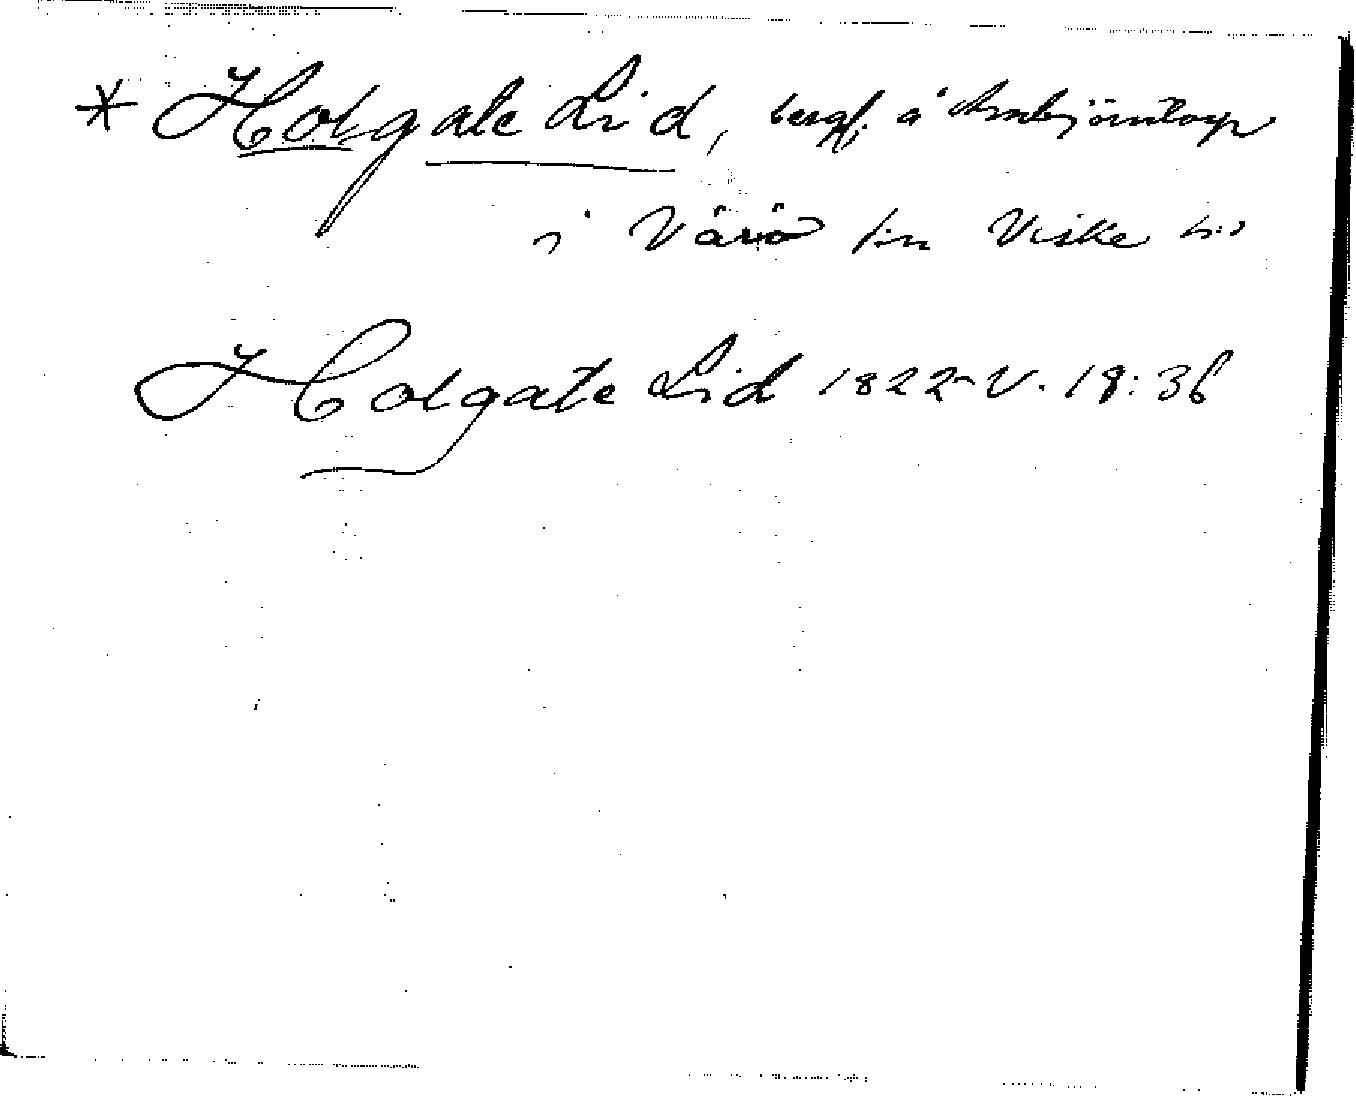 * Holgate Lid, bergh. å Ambjörntorp
i Värö sn Viske hd
Holgate Lid 1822 V. 18:36